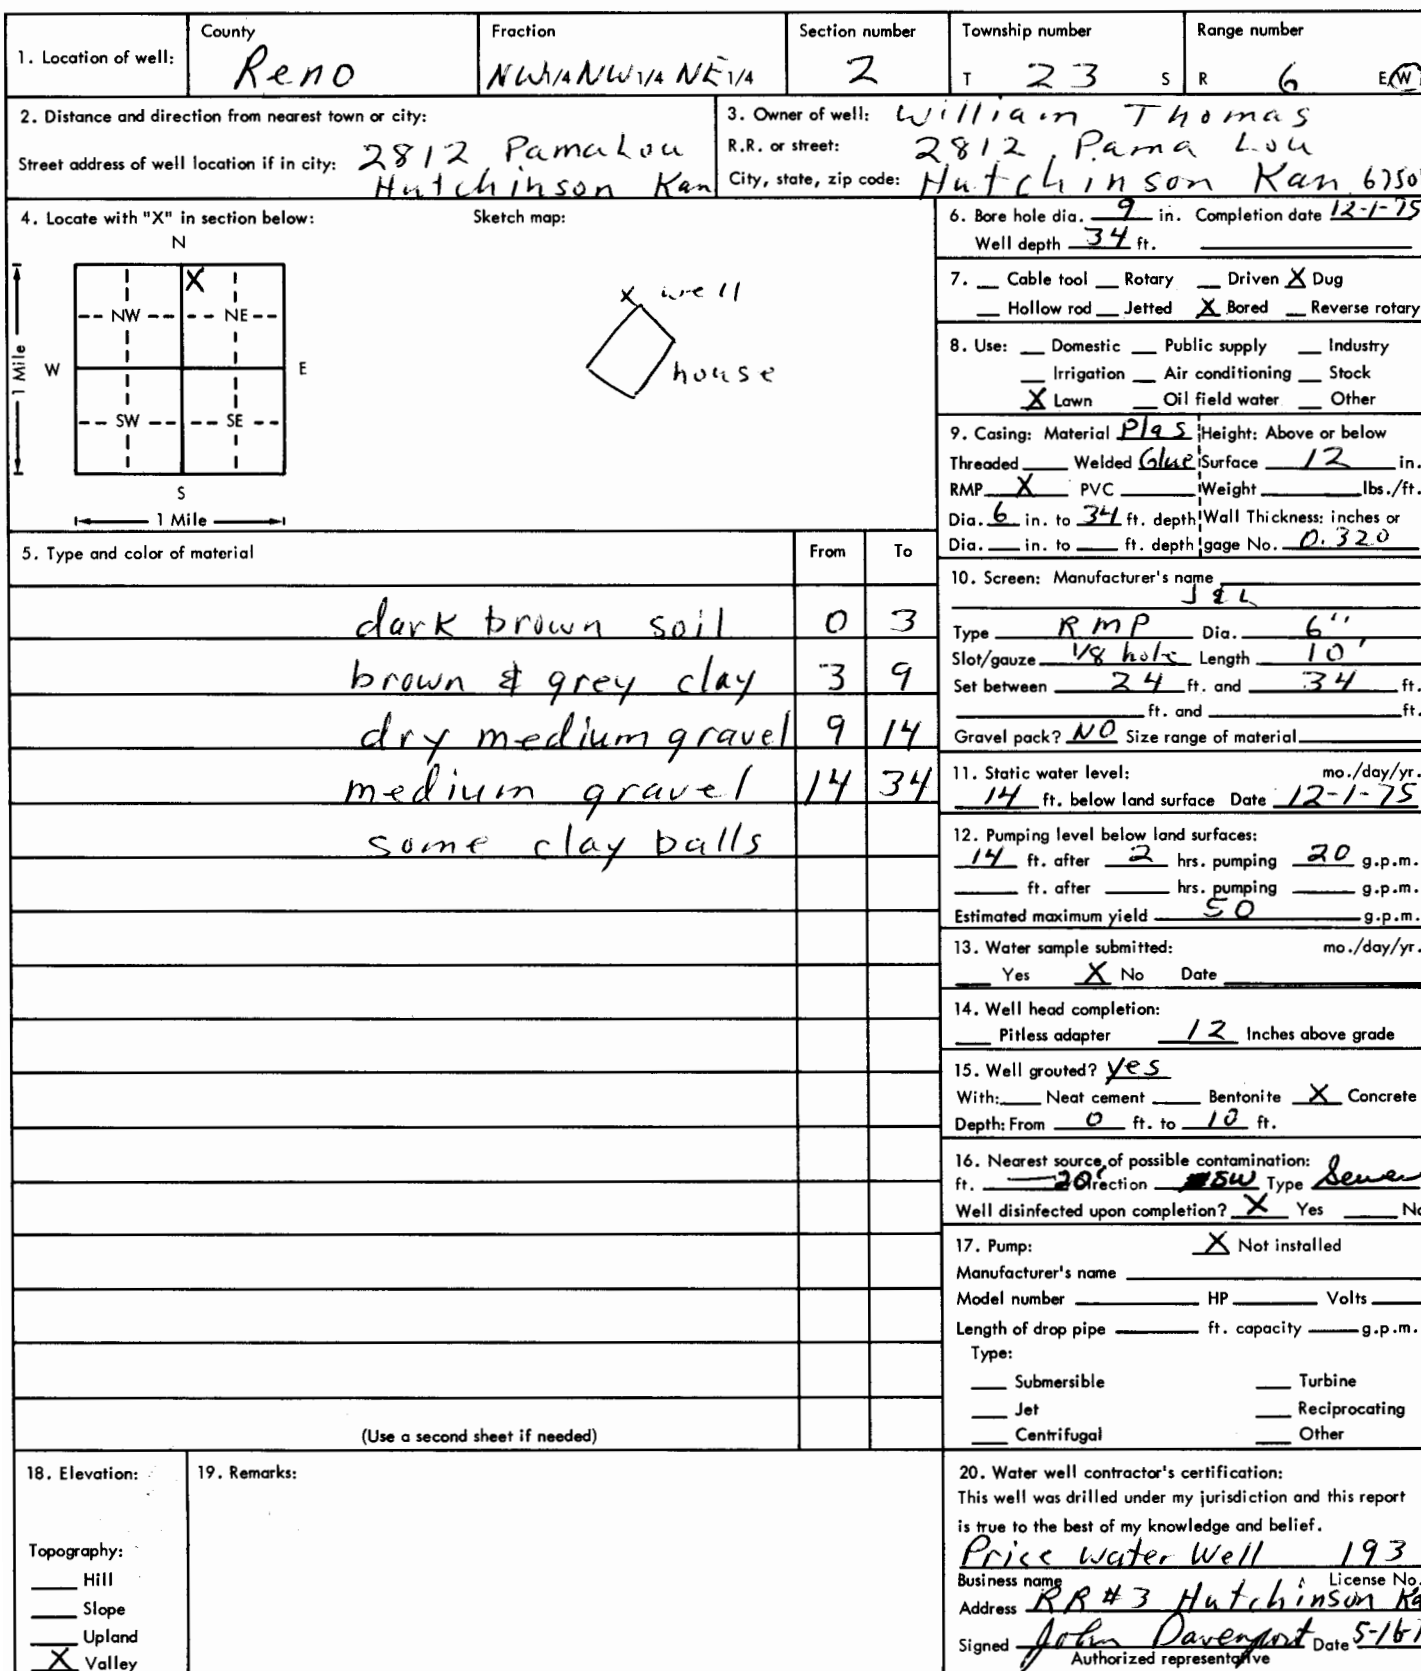 County Fraction Section number Township number Range number
1. Location of well: Reno NW1/4 NW1/4 NE1/4 2 T 23 S R 6 E/W
2. Distance and direction from nearest town or city:
Street address of well location if in city: 2812 Pamalou
Hutchinson Kan
3. Owner of well: William Thomas
R.R. or street: 2812 Pama Lou
City, state, zip code: Hutchinson Kan 6750
4. Locate with "X" in section below: Sketch map:
N
X
NW NE
W E
SW SE
S
1 Mile
1 Mile
X well
house
5. Type and color of material From To
dark brown soil 0 3
brown & grey clay 3 9
dry medium gravel 9 14
medium gravel 14 34
some clay balls
(Use a second sheet if needed)
6. Bore hole dia. 9 in. Completion date 12-1-75
Well depth 34 ft.
7. __ Cable tool __ Rotary __ Driven X Dug
__ Hollow rod __ Jetted X Bored __ Reverse rotary
8. Use: __ Domestic __ Public supply __ Industry
__ Irrigation __ Air conditioning __ Stock
X Lawn __ Oil field water __ Other
9. Casing: Material Plas Height: Above or below
Threaded ___ Welded Glue Surface 12 in.
RMP X PVC ___ Weight ___ lbs./ft.
Dia. 6 in. to 34 ft. depth Wall Thickness: inches or
Dia. ___ in. to ___ ft. depth gage No. 0.320
10. Screen: Manufacturer's name
J & L
Type RMP Dia. 6"
Slot/gauze 1/8 hole Length 10'
Set between 24 ft. and 34 ft.
___ ft. and ___ ft.
Gravel pack? NO Size range of material
11. Static water level: mo./day/yr.
14 ft. below land surface Date 12-1-75
12. Pumping level below land surfaces:
14 ft. after 2 hrs. pumping 20 g.p.m.
___ ft. after ___ hrs. pumping ___ g.p.m.
Estimated maximum yield 50 g.p.m.
13. Water sample submitted: mo./day/yr.
__ Yes X No Date
14. Well head completion:
__ Pitless adapter 12 Inches above grade
15. Well grouted? yes
With: ___ Neat cement ___ Bentonite X Concrete
Depth: From 0 ft. to 10 ft.
16. Nearest source of possible contamination:
ft. 20' Direction SW Type Sewer
Well disinfected upon completion? X Yes ___ No
17. Pump: X Not installed
Manufacturer's name
Model number ___ HP ___ Volts
Length of drop pipe ___ ft. capacity ___ g.p.m.
Type:
___ Submersible ___ Turbine
___ Jet ___ Reciprocating
___ Centrifugal ___ Other
18. Elevation:
Topography:
___ Hill
___ Slope
___ Upland
X Valley
19. Remarks:
20. Water well contractor's certification:
This well was drilled under my jurisdiction and this report
is true to the best of my knowledge and belief.
Price Water Well 193
Business name License No.
Address RR #3 Hutchinson Ka
Signed John Davenport Date 5-16-7
Authorized representative